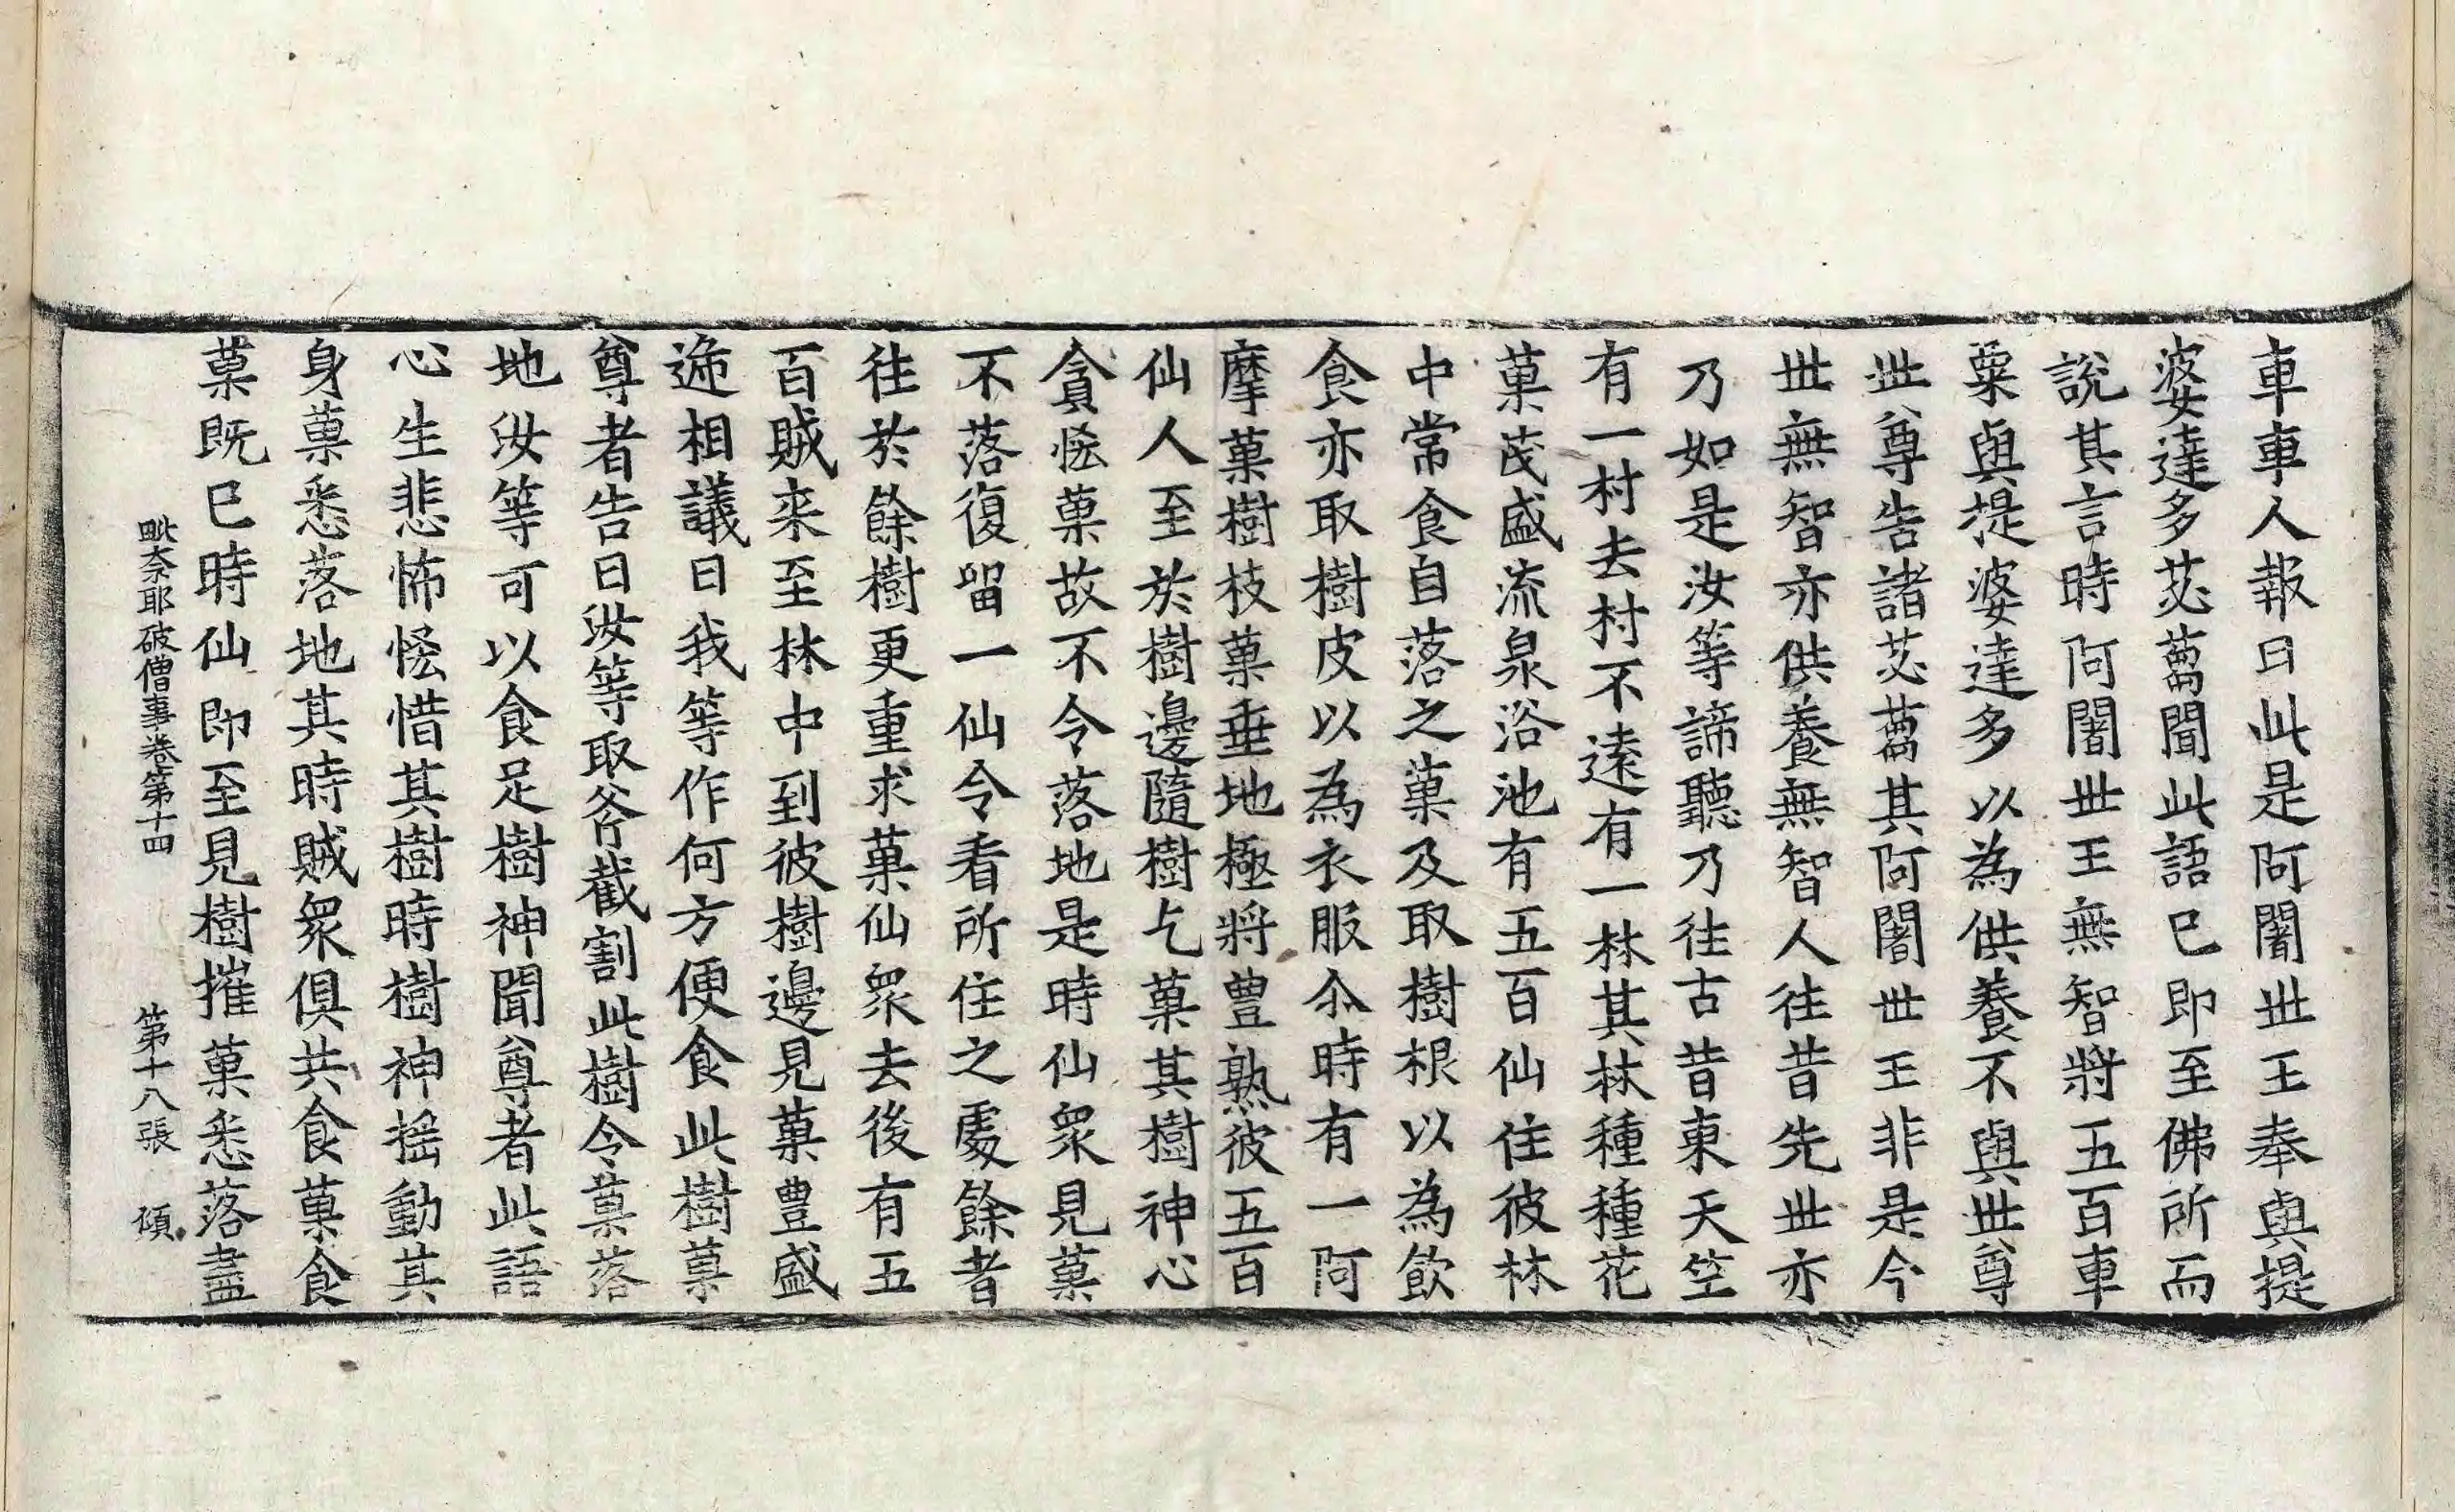 車車人報曰此是阿闍世王奉與提
婆達多苾蒭聞此語已即至佛所而
說其言時阿闍世王無智將五百車
粟與提婆達多以為供養不與世尊
世尊告諸苾蒭其阿闍世王非是今
世無智亦供養無智人往昔先世亦
乃如是汝等諦聽乃往古昔東天竺
有一村去村不遠有一林其林種種花
菓茂盛流泉浴池有五百仙住彼林
中常食自落之菓及取樹根以為飲
食亦取樹皮以為衣服尒時有一阿
摩菓樹枝菓垂地極將豊熟彼五百
仙人至於樹邊隨樹乞菓其樹神心
貪恡菓故不令落地是時仙衆見菓
不落復留一仙令看所住之處餘者
往於餘樹更重求菓仙衆去後有五
百賊来至林中到彼樹邊見菓豊盛
遞相議曰我等作何方便食此樹菓
尊者告曰汝等取斧截割此樹令菓落
地汝等可以食足樹神聞尊者此語
心生悲怖恡惜其樹時樹神揺動其
身菓悉落地其時賊衆俱共食菓食
菓既已時仙即至見樹摧菓悉落盡
毗奈耶破僧事卷第十四 第十八張 𩓐